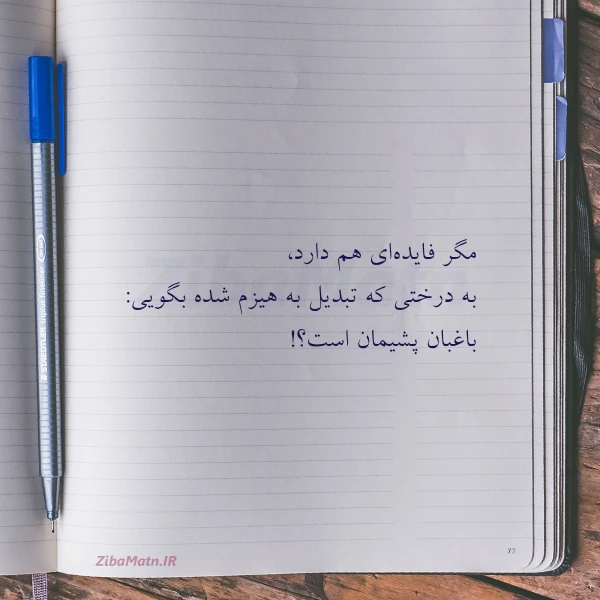 مگر فایده‌ای هم دارد،
به درختی که تبدیل به هیزم شده بگویی:
باغبان پشیمان است؟!
ZibaMatn.IR